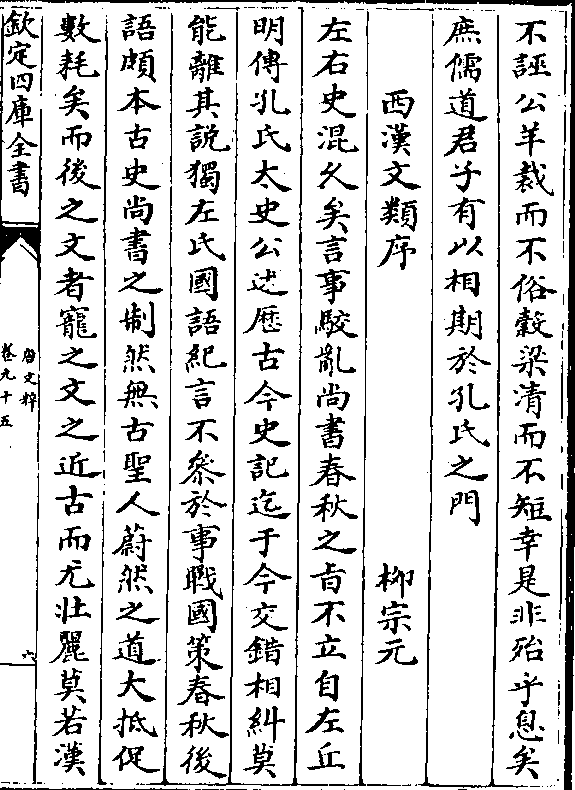 不誣公羊裁而不俗穀梁清而不短幸是非殆乎息矣
庶儒道君子有以相期於孔氏之門
西漢文類序　柳宗元
左右史混乆矣言事駮亂尚書春秋之㫖不立自左丘
明傳孔氏太史公述歴古今史記迄于今交錯相糾莫
能離其説獨左氏國語紀言不叅於事戰國策春秋後
語頗本古史尚書之制然無古聖人蔚然之道大抵促
數耗矣而後之文者寵之文之近古而尤壯麗莫若漢
欽定四庫全書
唐文粹
卷九十五
六